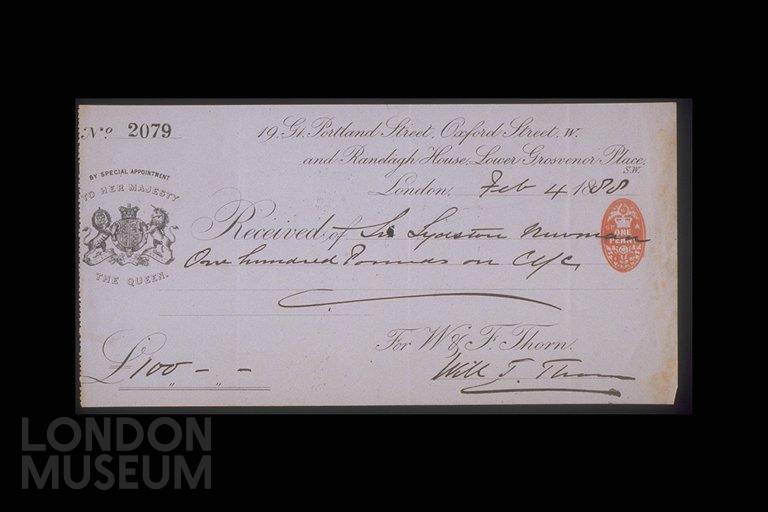 No 2079
19, Gt. Portland Street, Oxford Street, W.
and Ranelagh House, Lower Grosvenor Place,
S.W.
BY SPECIAL APPOINTMENT
TO HER MAJESTY
THE QUEEN.
London, Feb 4 1888
Received of Sir Lydston Newman
One hundred Pounds on a/c
ONE
PENNY
For W & F. Thorn.
£100 - -
Will T. Thorn
LONDON
MUSEUM